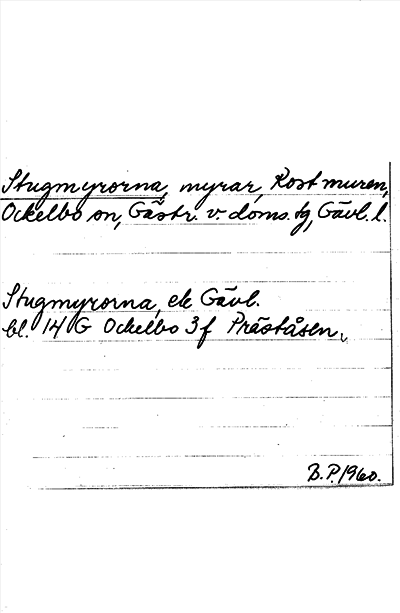 Stugmyrorna, myrar, Kostmuren,
Ockelbo sn, Gästr. v. doms.dg, Gävl. l.
Stugmyrorna, ek Gävl.
bl. 14 G Ockelbo 3 f Präståsen.
B.P. 1960.